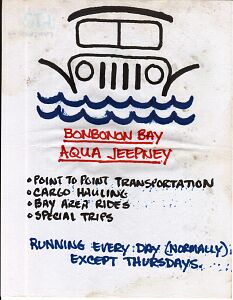 BONBONON BAY
AQUA JEEPNEY
• POINT TO POINT TRANSPORTATION
• CARGO HAULING
• BAY AREA RIDES
• SPECIAL TRIPS
RUNNING EVERY DAY (NORMALLY)
EXCEPT THURSDAYS.